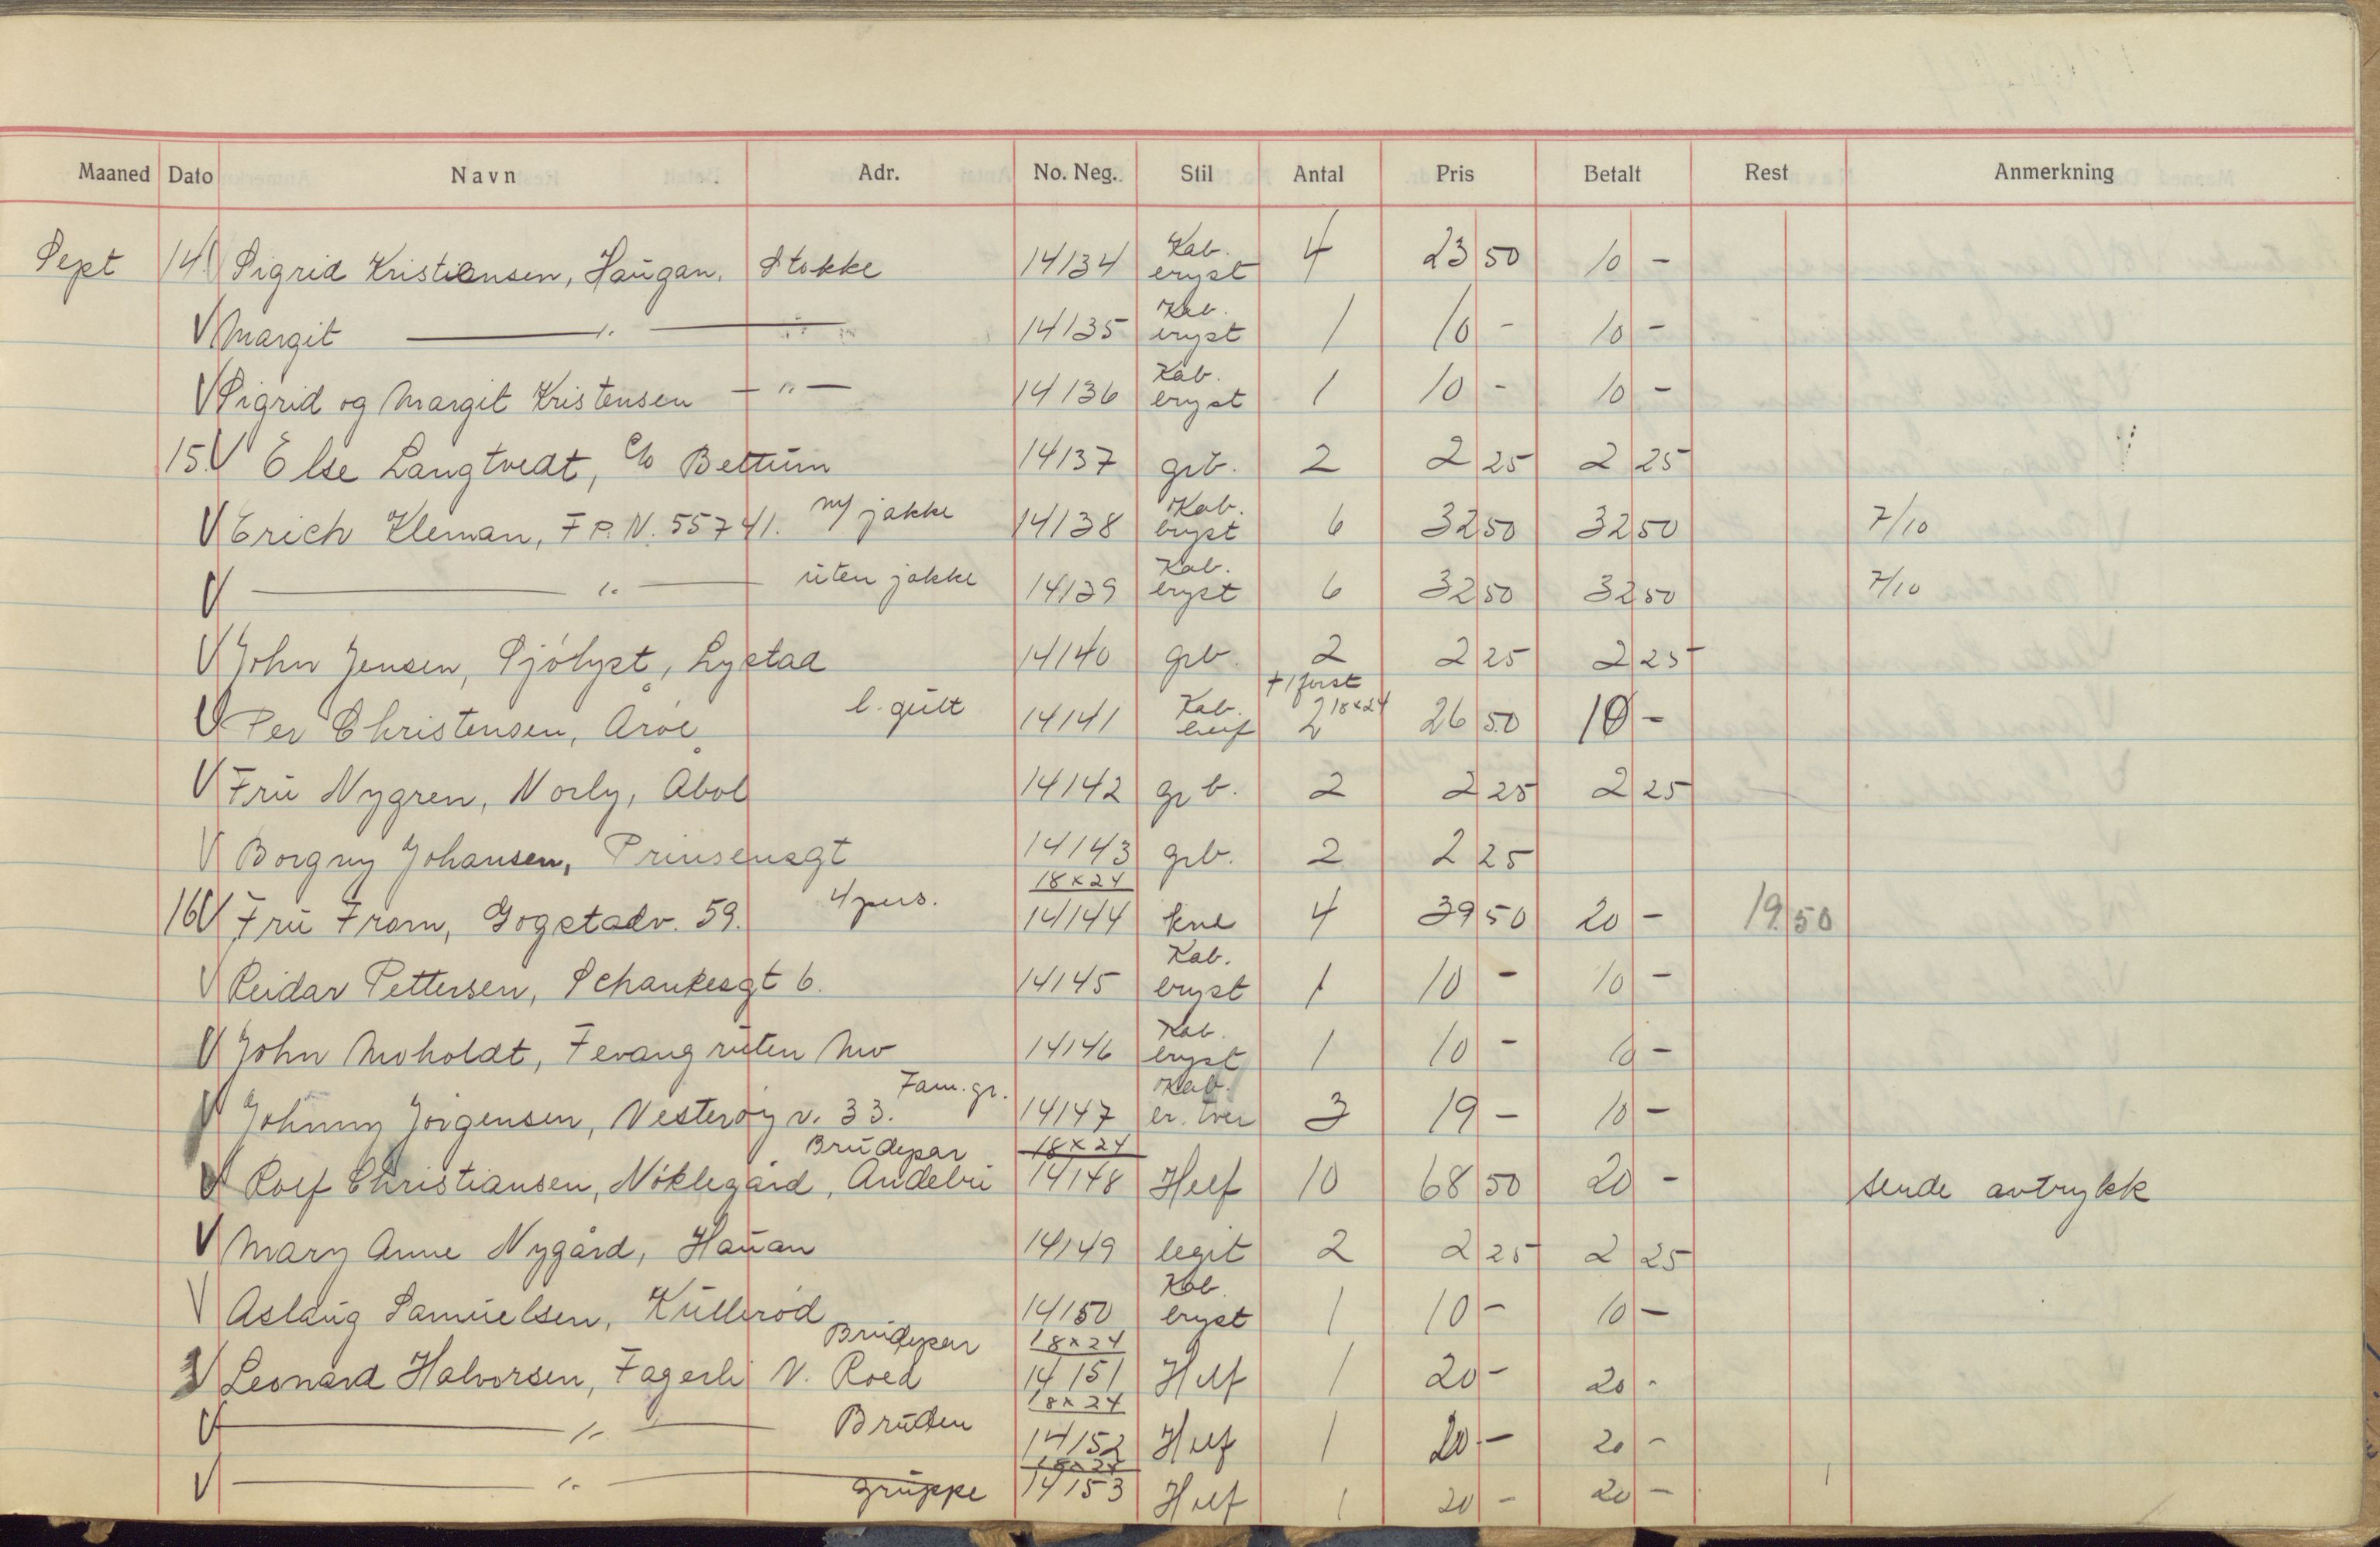 Maaned Dato Navn Adr. No. Neg. Stil Antal Pris Betalt Rest Anmerkning
Sept 14. Sigrid Kristiansen, Haugan, Stokke 14134 Kab. bryst 4 23 50 10 -
V Margit — " — 14135 Kab. bryst 1 10 - 10 -
V Sigrid og Margit Kristensen — " — 14136 Kab. bryst 1 10 - 10 -
15. V Else Langtvedt, c/o Bettum 14137 grb. 2 2 25 2 25
V Erich Kleman, F.P.N. 55741. m/ jakke 14138 Kab. bryst 6 32 50 32 50 7/10
V — " — uten jakke 14139 Kab. bryst 6 32 50 32 50 7/10
V John Jensen, Sjölyst, Lystad 14140 grb. 2 2 25 2 25
V Per Christensen, Åröe l. gutt 14141 Kab. 2 + 1 18x24 26 50 10 -
V Fru Nygren, Norly, Åbol 14142 grb. 2 2 25 2 25
V Borgny Johansen, Prinsensgt 14143 grb. 2 2 25
16 V Fru From, Gogstadv. 59. 4 pers. 18x24 14144 kne 4 39 50 20 - 19.50
V Reidar Pettersen, Schankesgt 6. 14145 Kab. bryst 1 10 - 10 -
V John Moholdt, Fevangruten Mo 14146 Kab. bryst 1 10 - 10 -
V Johnny Jörgensen, Vesteröy v. 33. Fam. gr. 14147 Kab. br. tver 3 19 - 10 -
V Rolf Christiansen, Nöklegård, Andebu Brudepar 18x24 14148 Helf 10 68 50 20 - sende avtrykk
V Mary Anne Nygård, Hauan 14149 legit 2 2 25 2 25
V Aslaug Samuelsen, Kullerød 14150 Kab. bryst 1 10 - 10 -
V Leonard Halvorsen, Fagerli N. Roed Brudepar 18x24 14151 Helf 1 20 - 20 -
V — " — Bruden 18x24 14152 Helf 1 20 - 20 -
V — " — gruppe 18x24 14153 Helf 1 20 - 20 -